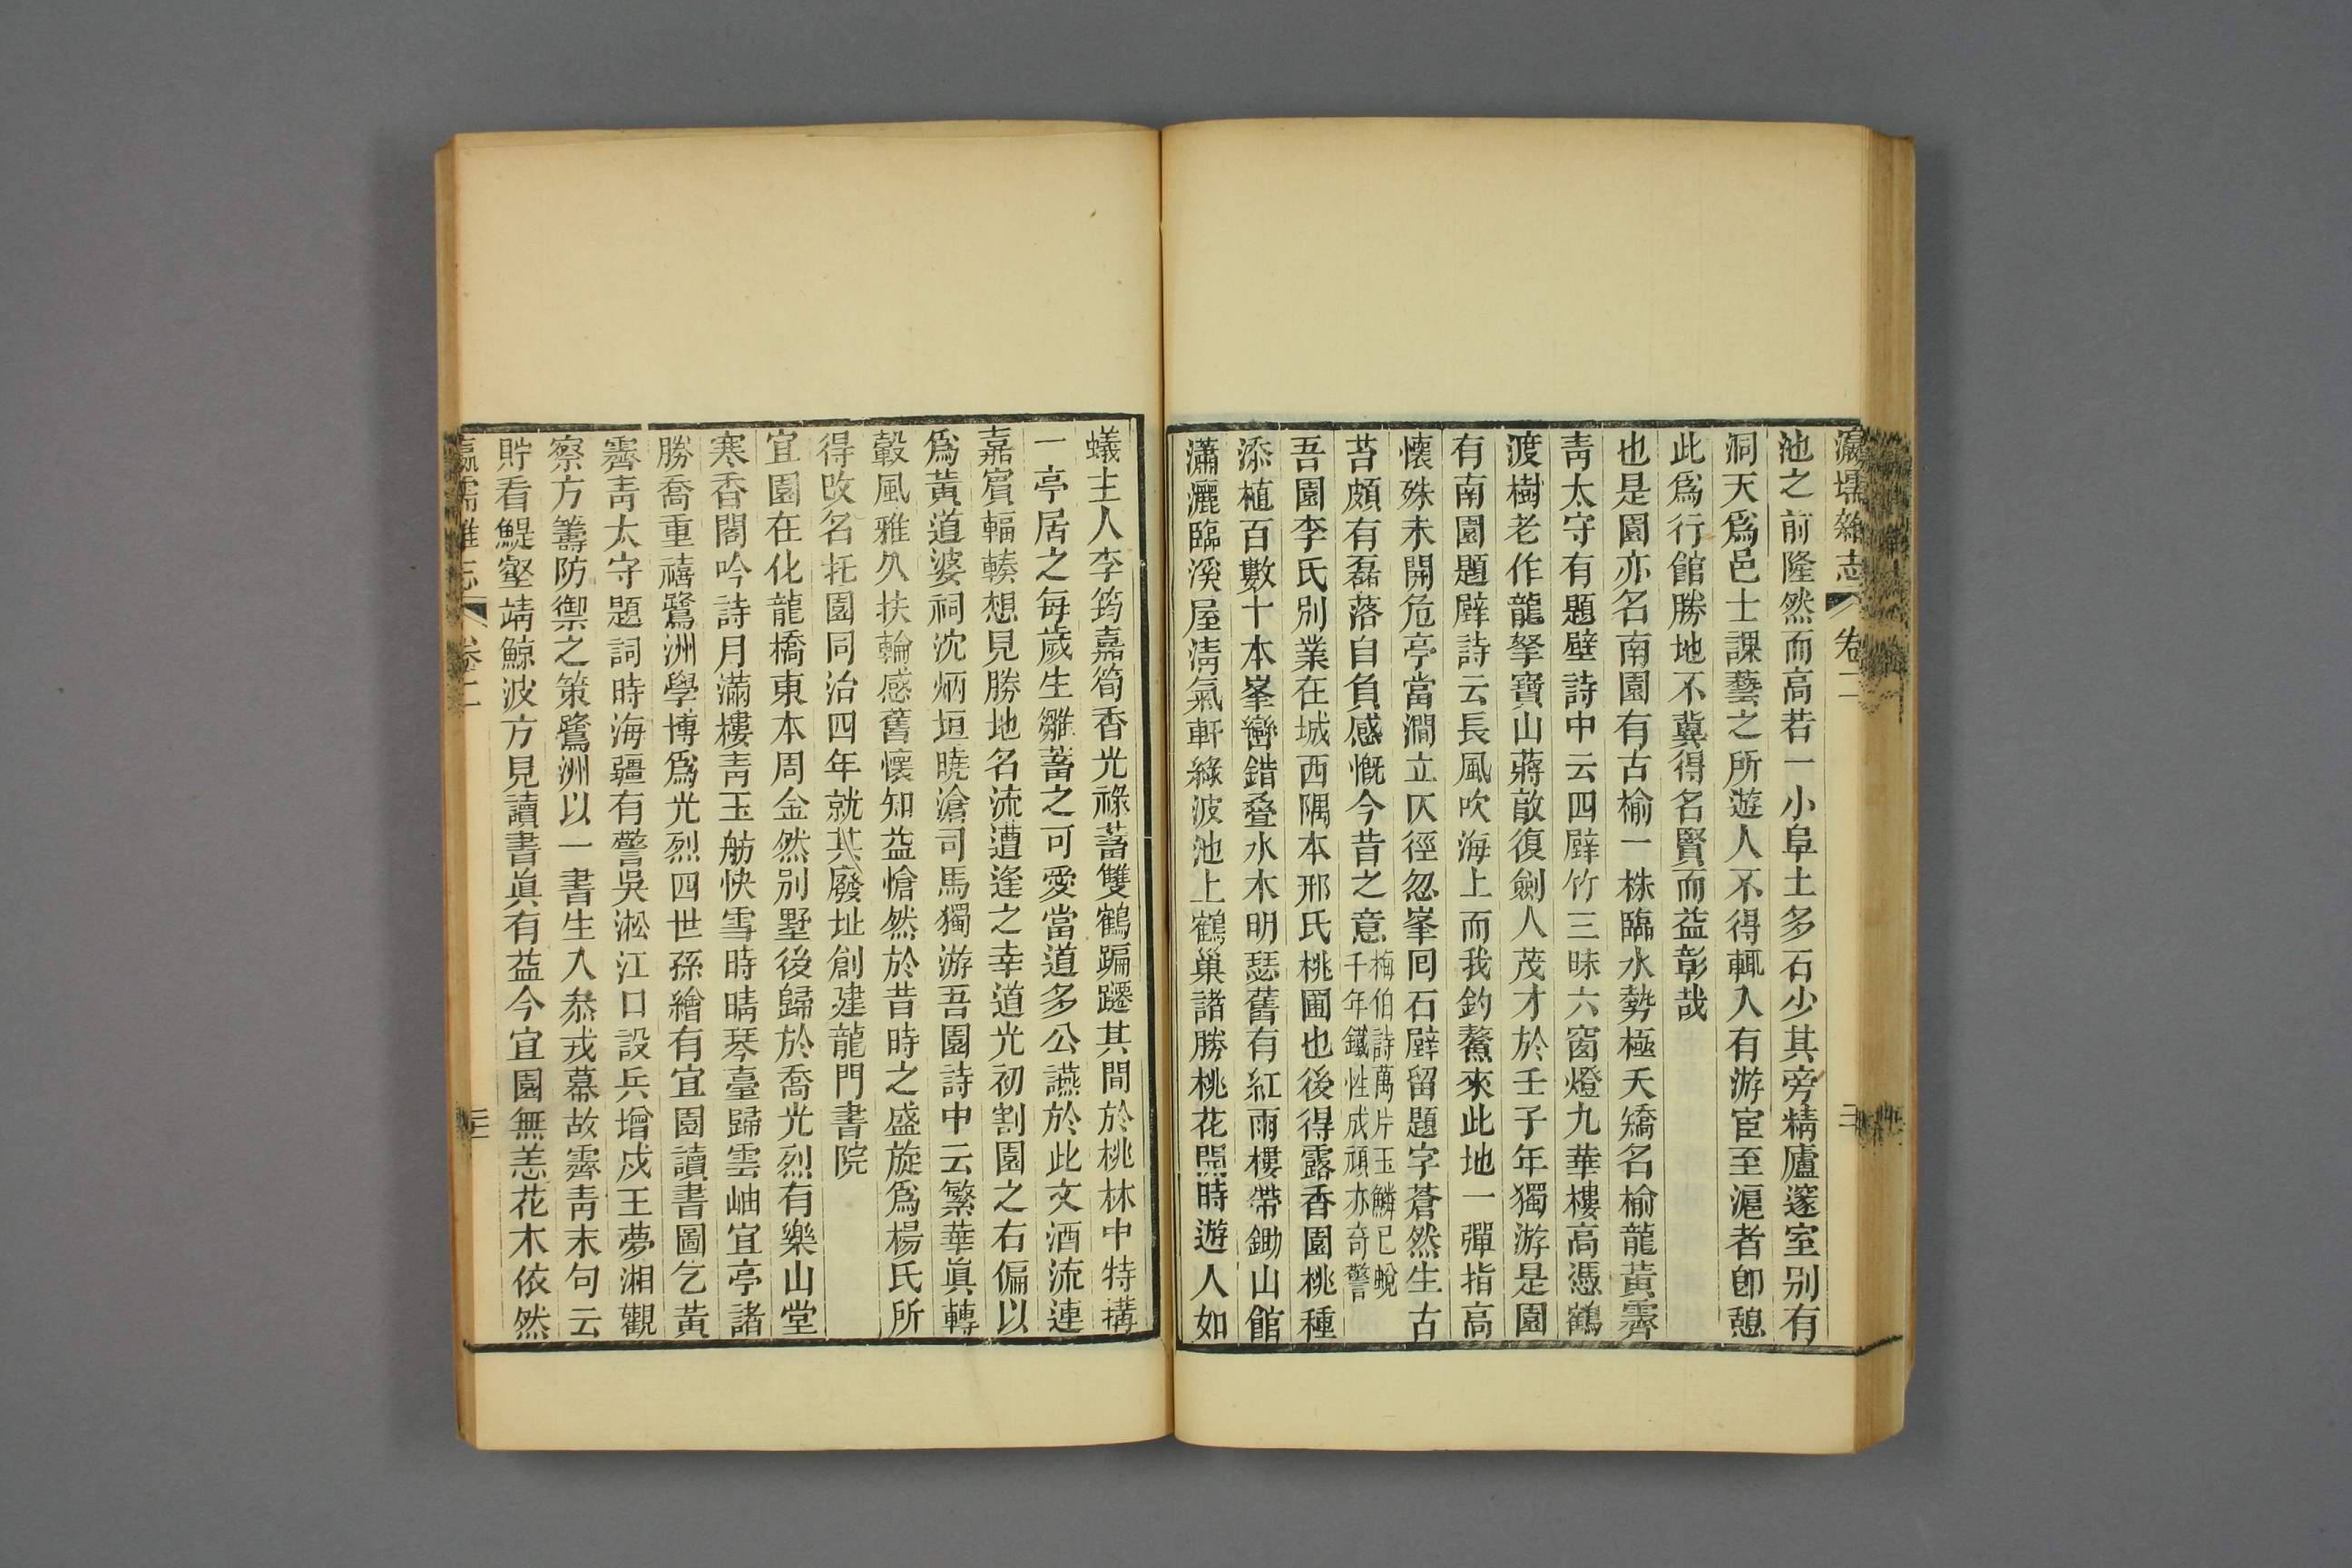 瀛壖雜志 卷二 二
池之前隆然而高若一小阜土多石少其旁精廬邃室別有
洞天爲邑士課藝之所遊人不得輒入有游宦至滬者卽憩
此爲行館勝地不冀得名賢而益彰哉
也是園亦名南園有古榆一株臨水勢極夭矯名榆龍黃霽
靑太守有題壁詩中云四壁竹三昧六窗燈九華樓高憑鶴
渡樹老作龍拏寶山蔣敵復劍人茂才於壬子年獨游是園
有南園題壁詩云長風吹海上而我釣鰲來此地一彈指高
懷殊未開危亭當澗立仄徑忽峯回石壁留題字蒼然生古
苔頗有磊落自負感慨今昔之意梅伯詩萬片玉鱗已蛻千年鐵性成頑亦奇警
吾園李氏別業在城西隅本邢氏桃圃也後得露香園桃種
添植百數十本峯巒錯叠水木明瑟舊有紅雨樓帶鋤山館
瀟灑臨溪屋淸氣軒綠波池上鶴巢諸勝桃花開時遊人如
蟻主人李筠嘉筍香光祿蓄雙鶴蹁躚其間於桃林中特搆
一亭居之每歲生雛蓄之可愛當道多公讌於此文酒流連
嘉賓輻輳想見勝地名流遭逢之幸道光初割園之右偏以
爲黃道婆祠沈炳垣曉滄司馬獨游吾園詩中云繁華眞轉
轂風雅久扶輪感舊懷知益愴然於昔時之盛旋爲楊氏所
得改名托園同治四年就其廢址創建龍門書院
宜園在化龍橋東本周金然別墅後歸於喬光烈有樂山堂
寒香閣吟詩月滿樓靑玉舫快雪時晴琴臺歸雲岫宜亭諸
勝喬重禧鷺洲學博爲光烈四世孫繪有宜園讀書圖乞黃
霽靑太守題詞時海疆有警吳淞江口設兵增戍王夢湘觀
察方籌防禦之策鷺洲以一書生入叅戎幕故霽靑末句云
貯看鯷壑靖鯨波方見讀書眞有益今宜園無恙花木依然
瀛壖雜志 卷二 三